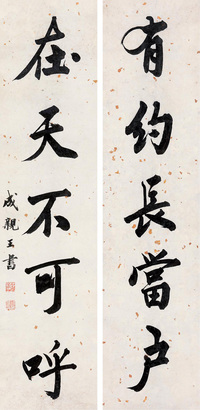 有約長當戶
在天不可呼
成親王書